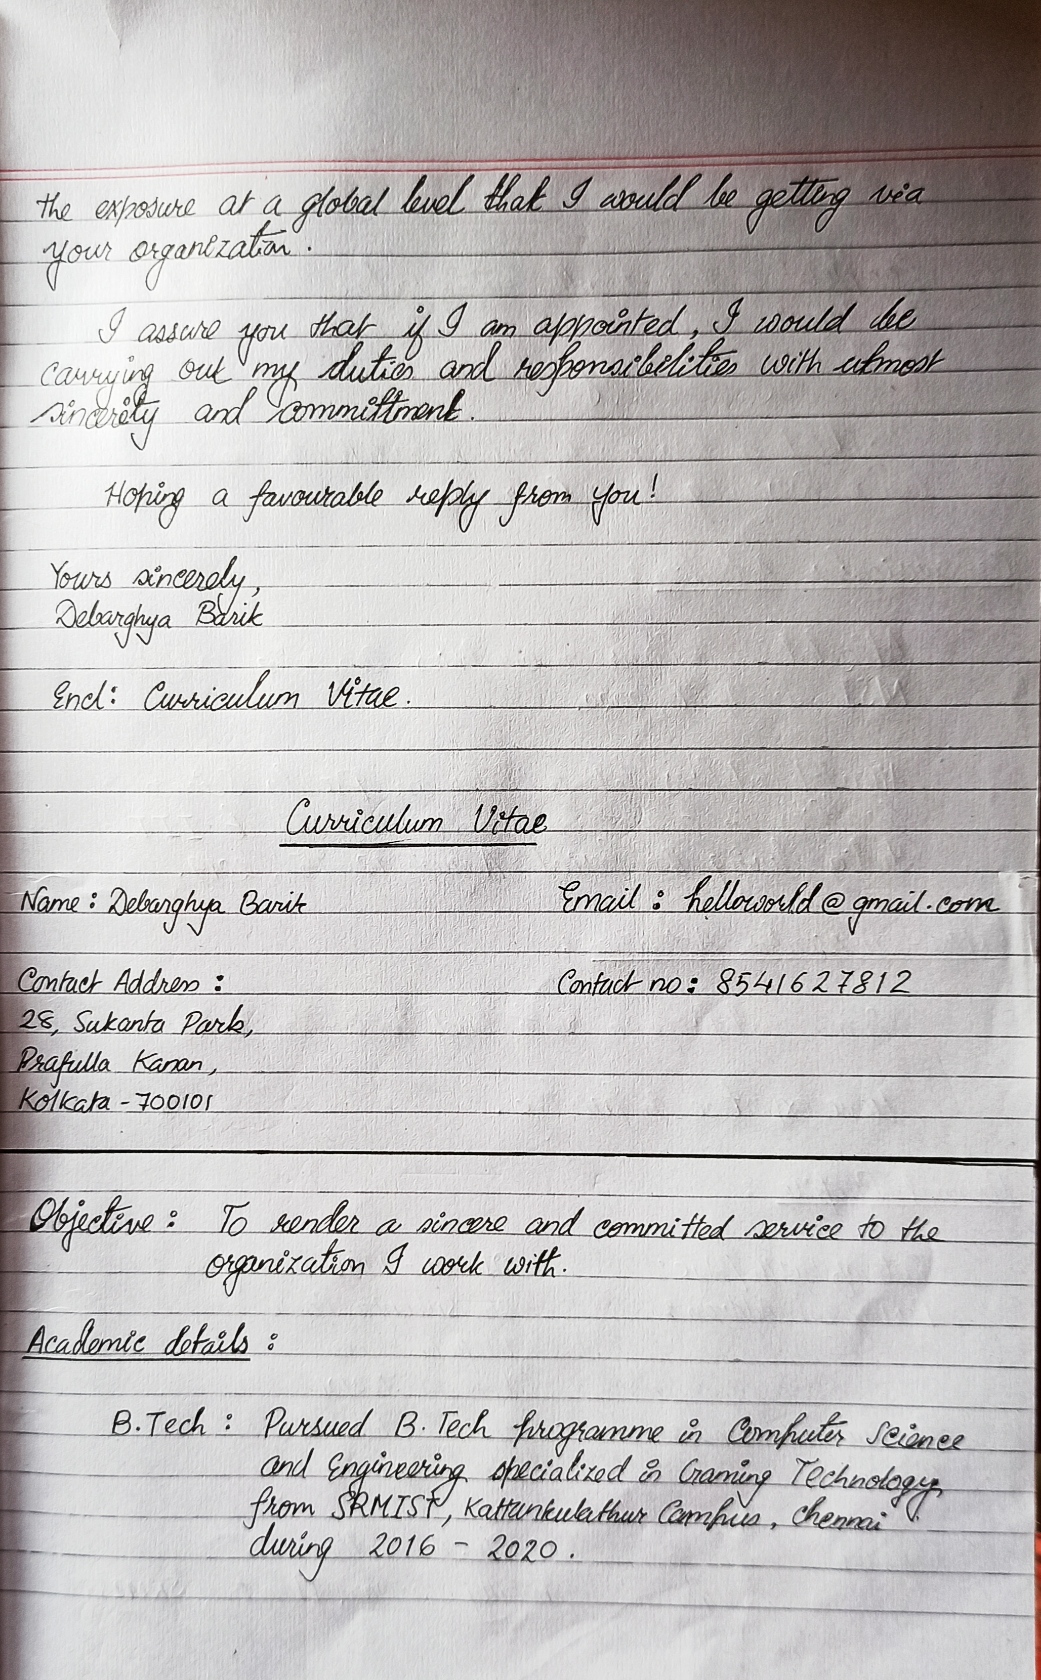 the exposure at a global level that I would be getting via
your organization.
I assure you that if I am appointed, I would be
carrying out my duties and responsibilities with utmost
sincerity and committment.
Hoping a favourable reply from you!
Yours sincerely,
Debarghya Barik
Encl: Curriculum Vitae.
Curriculum Vitae
Name: Debarghya Barik Email: helloworld@gmail.com
Contact Address: Contact no: 8541627812
28, Sukanta Park,
Prafulla Kanan,
Kolkata - 700101
Objective: To render a sincere and committed service to the
organization I work with.
Academic details:
B.Tech: Pursued B.Tech programme in Computer Science
and Engineering specialized in Gaming Technology,
from SRMIST, Kattankulathur Campus, Chennai
during 2016 - 2020.